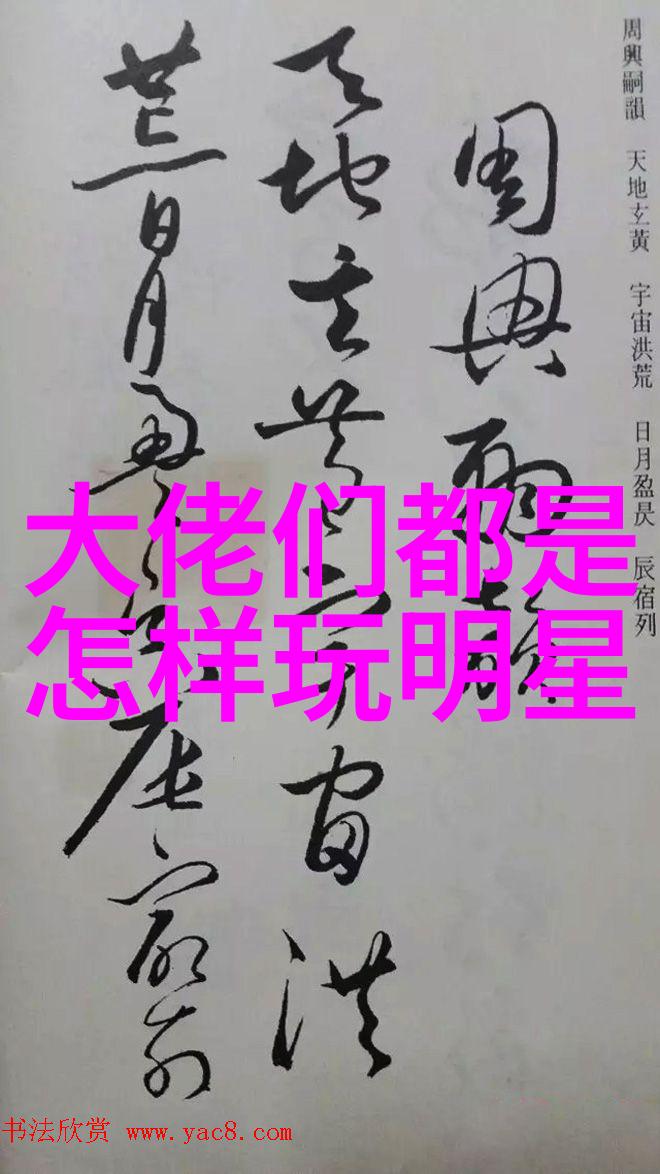 周興嗣韻 天地玄黃 宇宙洪荒 日月盈昃 辰宿列
周興嗣韻
天地玄黃宇宙洪
荒日月盈昃辰宿列
大佬们都是
怎样玩明星
书法欣赏 www.yac8.com